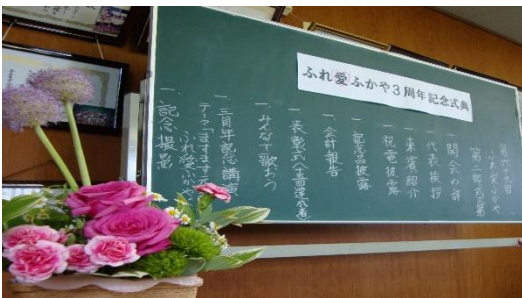 ふれ愛ふかや3周年記念式典
第一部式典
一 開会の辞
一 代表挨拶
一 来賓紹介
一 祝電披露
一 記念品披露
一 会計報告
一 表彰式
一 みんなで歌おう
一 三周年記念講演
テーマ「ますます元
ふれ愛ふかや
一 記念撮影